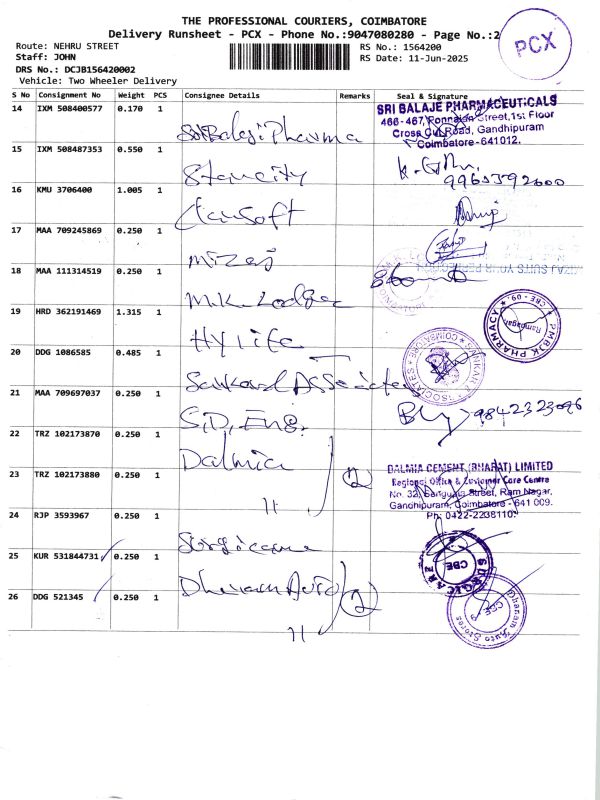 THE PROFESSIONAL COURIERS, COIMBATORE
Delivery Runsheet - PCX - Phone No.:9047080280 - Page No.:2
PCX
Route: NEHRU STREET
RS No.: 1564200
Staff: JOHN
RS Date: 11-Jun-2025
DRS No.: DCJB156420002
Vehicle: Two Wheeler Delivery
S No Consignment No Weight PCS Consignee Details Remarks Seal & Signature
14 IXM 508400577 0.170 1 Sri Balaji Pharma
SRI BALAJE PHARMACEUTICALS
466-467, Ponnaian Street, 1st Floor
Cross Cut Road, Gandhipuram
Coimbatore-641012.
15 IXM 508487353 0.550 1 Stancity
9965392600
16 KMU 3706400 1.005 1 Clausoft
17 MAA 709245869 0.250 1 Mizaj
18 MAA 111314519 0.250 1 M.K. Lodge
19 HRD 362191469 1.315 1 Hylife
PMBJK PHARMACY * CBE - 09. *
Ramnagar
20 DDG 1086585 0.485 1 Sankara Associates
SANKARA ASSOCIATES * COIMBATORE *
21 MAA 709697037 0.250 1 S.D. Eng.
9842323096
22 TRZ 102173870 0.250 1 Dalmia
23 TRZ 102173880 0.250 1 11 2
DALMIA CEMENT (BHARAT) LIMITED
Regional Office & Customer Care Centre
No. 32, Sengupta Street, Ram Nagar,
Gandhipuram, Coimbatore - 641 009.
Ph: 0422-2238110
24 RJP 3593967 0.250 1 Surgicare
SURGICARE
CBE
25 KUR 531844731 0.250 1 Dharam Auto
26 DDG 521345 0.250 1 11 2
Dharam Auto Stores
CBE-9